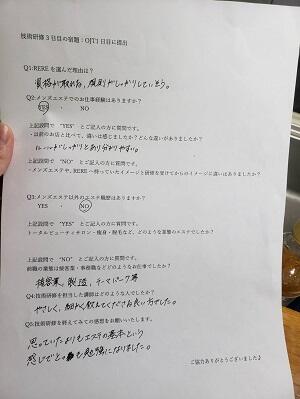 技術研修3日目の宿題：OJT1日目に提出
Q1:REREを選んだ理由は？
資格が取れる、規則がしっかりしていそう。
Q2:メンズエステでのお仕事経験はありますか？
YES ・ NO
上記設問で "YES" とご記入の方に質問です。
・以前のお店と比べて、違いは感じましたか？どんな違いがありましたか？
しっかりと 分かりやすい。
上記設問で "NO" とご記入の方に質問です。
・メンズエステや、REREへ持っていたイメージと研修を受けてからのイメージに違いはありましたか？
Q3:メンズエステ以外のエステ職歴はありますか？
YES ・ NO
上記設問で "YES" とご記入の方に質問です。
トータルビューティサロン・痩身・脱毛など、どのような業態のエステでしたか？
上記設問で "NO" とご記入の方に質問です。
前職の業態は接客業・事務職などどのようなお仕事でしたか？
接客業、製造、テーマパーク等
Q4:技術研修を担当した講師はどのような人でしたか？
やさしく、細かく教えてくださる良い方でした。
Q5:技術研修を終えてみての感想をお願いいたします。
思っていたよりもエステの基本という
感じでとても勉強になりました。
ご協力ありがとうございました♪